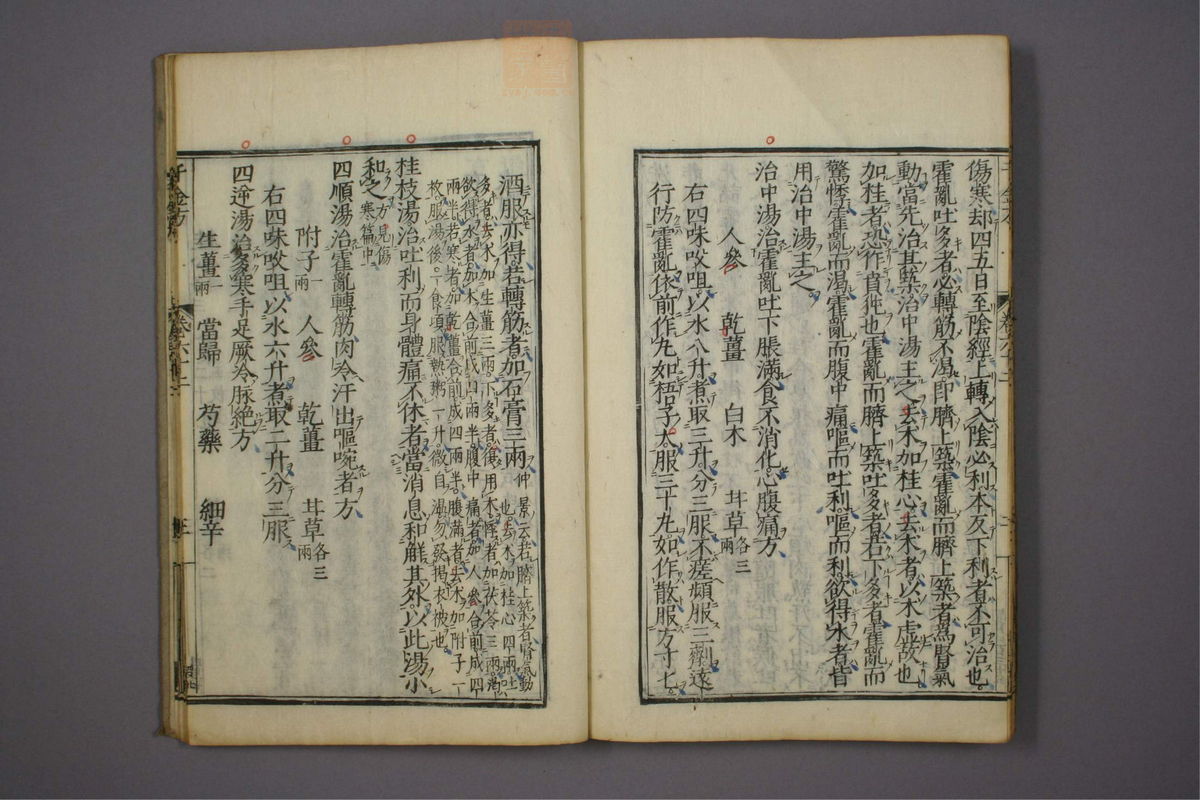 傷寒却四五日至陰經上轉入陰必利本反下利者不可治也
霍亂吐多者必轉筋不渴即臍上築霍亂而臍上築者爲腎氣
動當先治其築治中湯主之去朮加桂心去朮者以朮虛故也
加桂者恐作賁㹠也霍亂而臍上築吐多者若下多者霍亂而
驚悸霍亂而渴霍亂而腹中痛嘔而吐利嘔而利欲得水者皆
用治中湯主之
治中湯治霍亂吐下脹滿食不消化心腹痛方
人參 乾薑 白朮 甘草各三兩
右四味㕮咀以水八升煮取三升分三服不瘥頻服三劑遠
行防霍亂依前作丸如梧子大服三十丸如作散服方寸匕
酒服亦得若轉筋者加石膏三兩
仲景云若臍上築者腎氣動也去朮加桂心四兩吐
多者去朮加生薑三兩下多者復用朮悸者加茯苓三兩渴
欲得水者加朮合前成四兩半腹中痛者加人參合前成四
兩半若寒者加乾薑合前成四兩半腹滿者去朮加附子一
枚服湯後一食頃服熱粥一升微自溫勿發揭衣被也
桂枝湯治吐利而身體痛不休者當消息和解其外以此湯小
和之方見傷寒篇中
四順湯治霍亂轉筋肉冷汗出嘔啘者方
附子一兩 人參 乾薑 甘草各三兩
右四味㕮咀以水六升煮取二升分三服
四逆湯治多寒手足厥冷脉絶方
生薑 當歸 芍藥 細辛
千金方 卷六十二